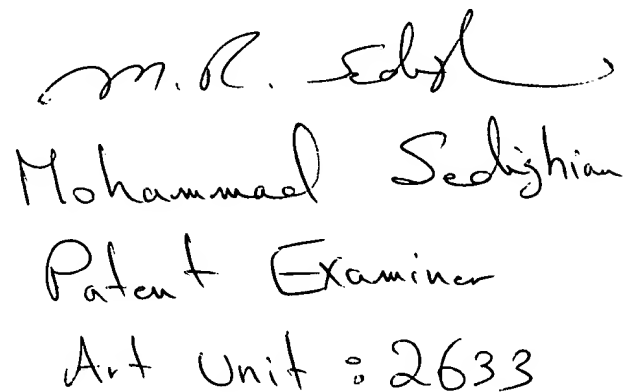 M. R. Sedigh
Mohammad Sedighian
Patent Examiner
Art Unit : 2633